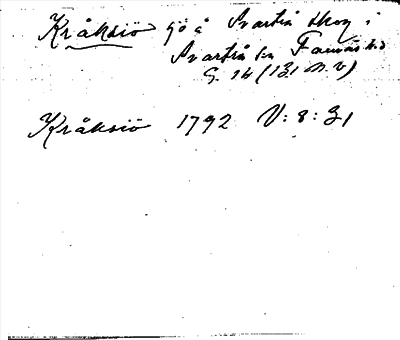 Kråksiö sjö å Svartrå skog i
Svartrå sn Faurås hd
G. 14 (131 n. v)
Kråksiö 1792 V: 8: 31